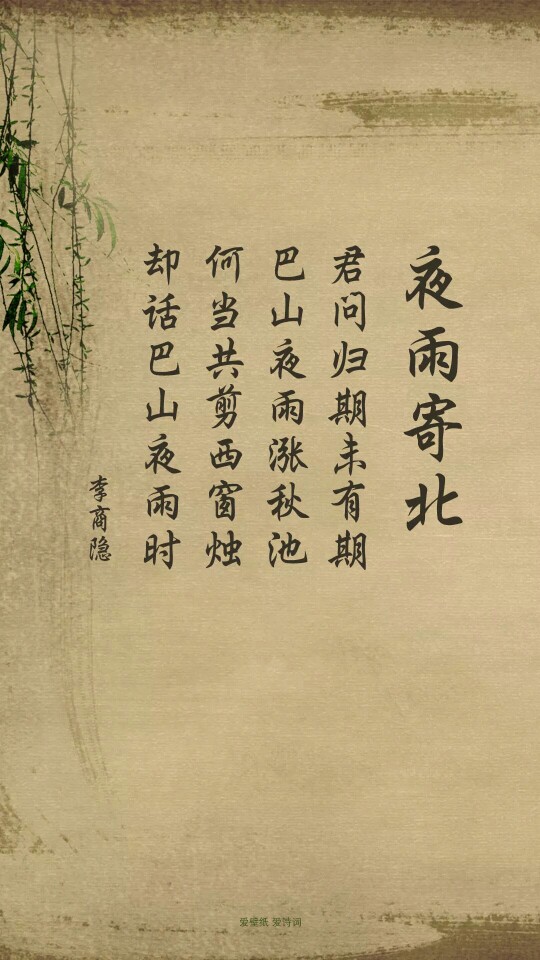 夜雨寄北
君问归期未有期
巴山夜雨涨秋池
何当共剪西窗烛
却话巴山夜雨时
李商隐
爱壁纸 爱诗词